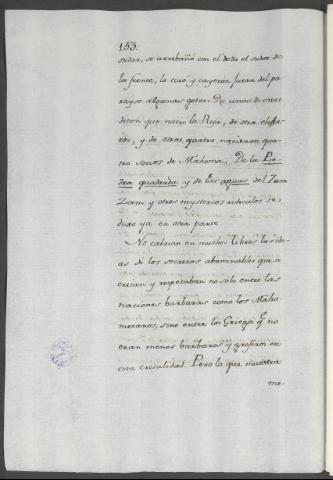 153.
sudar, se arrebañó con el dedo el sudor de
la frente, lo tiró y cayeron fuera del pa-
rayso algunas gotas. De una de estas
dicen que nació la Rosa, de otra el
y de otras quatro, nacieron qua-
tro socios de Mahoma. De la Pie-
dra quadrada y de las aguas del Zam
Zam y otros mysterios ridiculos se
dixo ya en otra parte
No cabrian en muchos libros las ide-
as de los secretos abominables que se
creian y respetaban no solo entre las
naciones barbaras como los Maho-
metanos, sino entre los Griegos q. no
eran menos barbaros y groseros en
esta credulidad. Pero la que muestra
me-